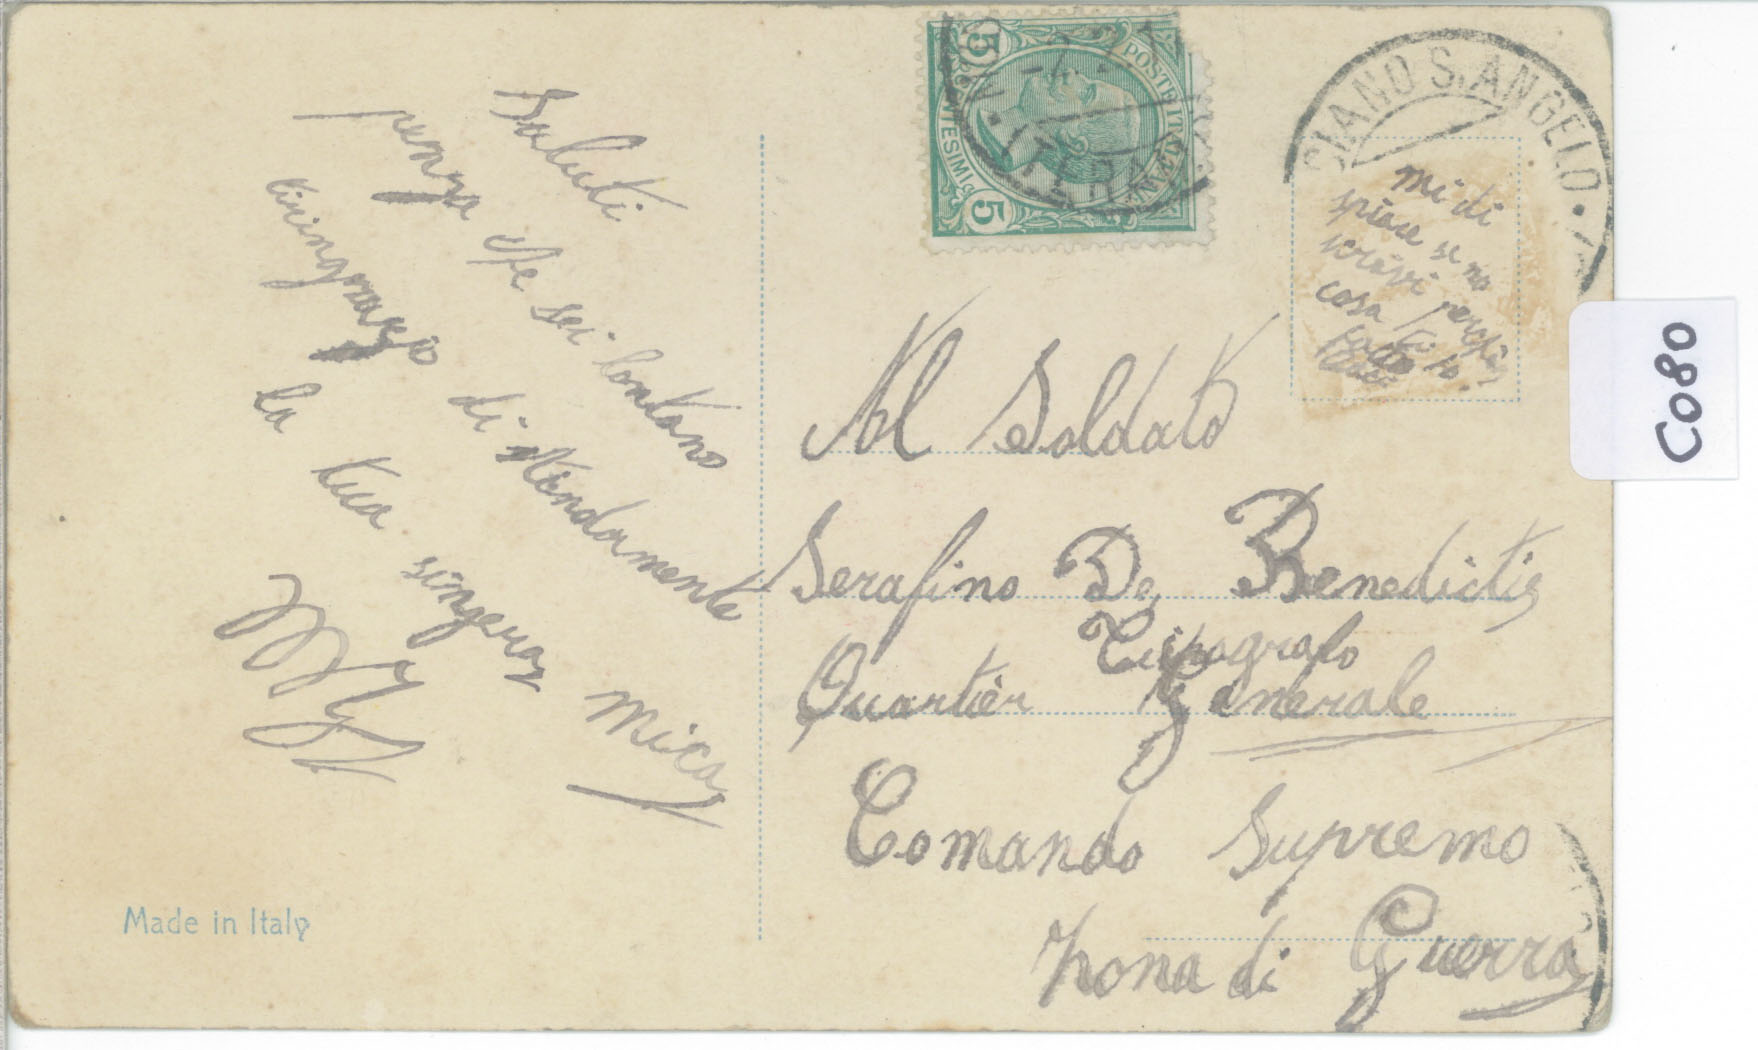 Saluti
penza che sei lontano
tiringrazio di stindamente
la tua singera
mica
Made in Italy
POSTE ITALIANE
CENTESIMI
5
5
CIANO S. ANGELO
mi di
spiace se no
scrivi
cosa
Al Soldato
Serafino De Benedictis
Tipografo
Quartier Generale
Comando Supremo
zona di Guerra
C080